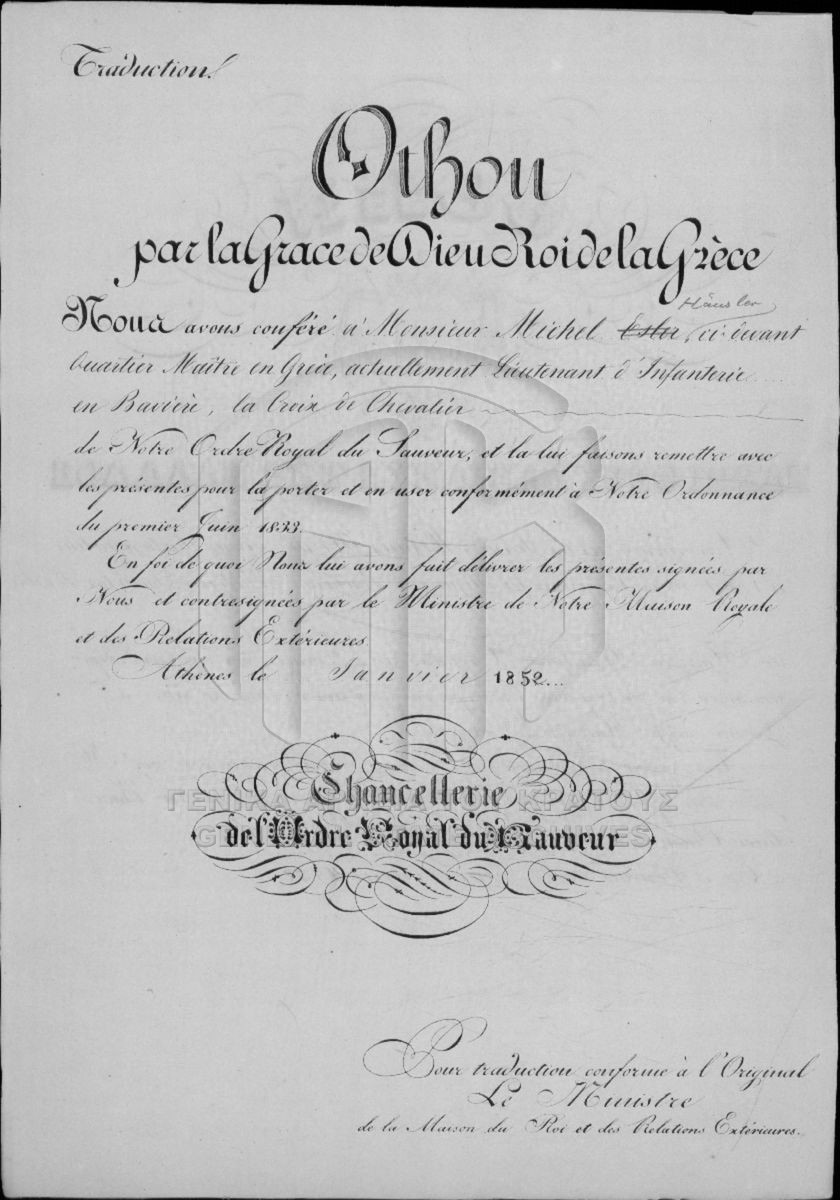 Traduction.
Othon
par la Grace de Dieu Roi de la Grèce
Häusler
Nous avons conféré à Monsieur Michel Esler, ci-devant
Quartier Maître en Grèce, actuellement Lieutenant d'Infanterie
en Bavière, la Croix de Chevalier
de Notre Ordre Royal du Sauveur, et la lui faisons remettre avec
les présentes pour la porter et en user conformément à Notre Ordonnance
du premier Juin 1833.
En foi de quoi Nous lui avons fait délivrer les présentes signées par
Nous et contresignées par le Ministre de Notre Maison Royale
et des Relations Extérieures
Athènes le Janvier 1852...
Chancellerie
ΓΕΝΙΚΑ ΑΡΧΕΙΑ ΤΟΥ ΚΡΑΤΟΥΣ
de l'Ordre Royal du Sauveur
Pour traduction conforme à l'Original
Le Ministre
de la Maison du Roi et des Relations Extérieures.